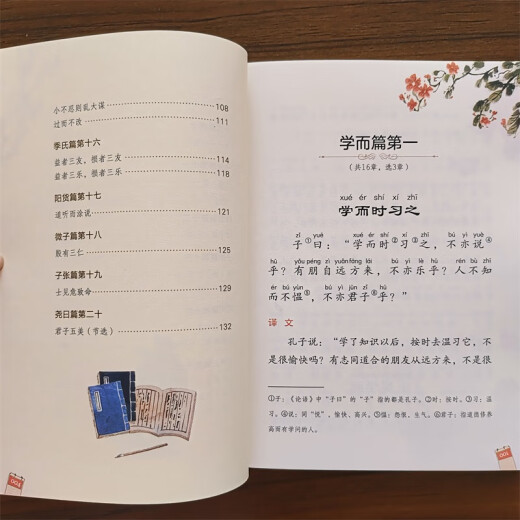 小不忍则乱大谋 108
过而不改 111
季氏篇第十六
益者三友，损者三友 114
益者三乐，损者三乐 118
阳货篇第十七
道听而涂说 121
微子篇第十八
殷有三仁 127
子张篇第十九
士见危致命 129
尧曰篇第二十
君子五美（节选） 132
学而篇第一
（共16章，选3章）
xué ér shí xí zhī
学而时习之
zǐ yuē xué ér shí xí zhī bú yì yuè
子①曰：“学而时②习③之，不亦说④
hū yǒu péng zì yuǎn fāng lái bú yì lè hū rén bù zhī
乎？有朋自远方来，不亦乐乎？人不知
ér bú yùn bú yì jūn zǐ hū
而不愠⑤，不亦君子⑥乎？”
译文
孔子说：“学了知识以后，按时去温习它，不
是很愉快吗？有志同道合的朋友从远方来，不是很
①子：《论语》中“子曰”的“子”指的都是孔子。②时：按时。③习：温
习。④说：同“悦”，愉快、高兴。⑤愠：怨恨，生气。⑥君子：指道德修养
高而有学问的人。